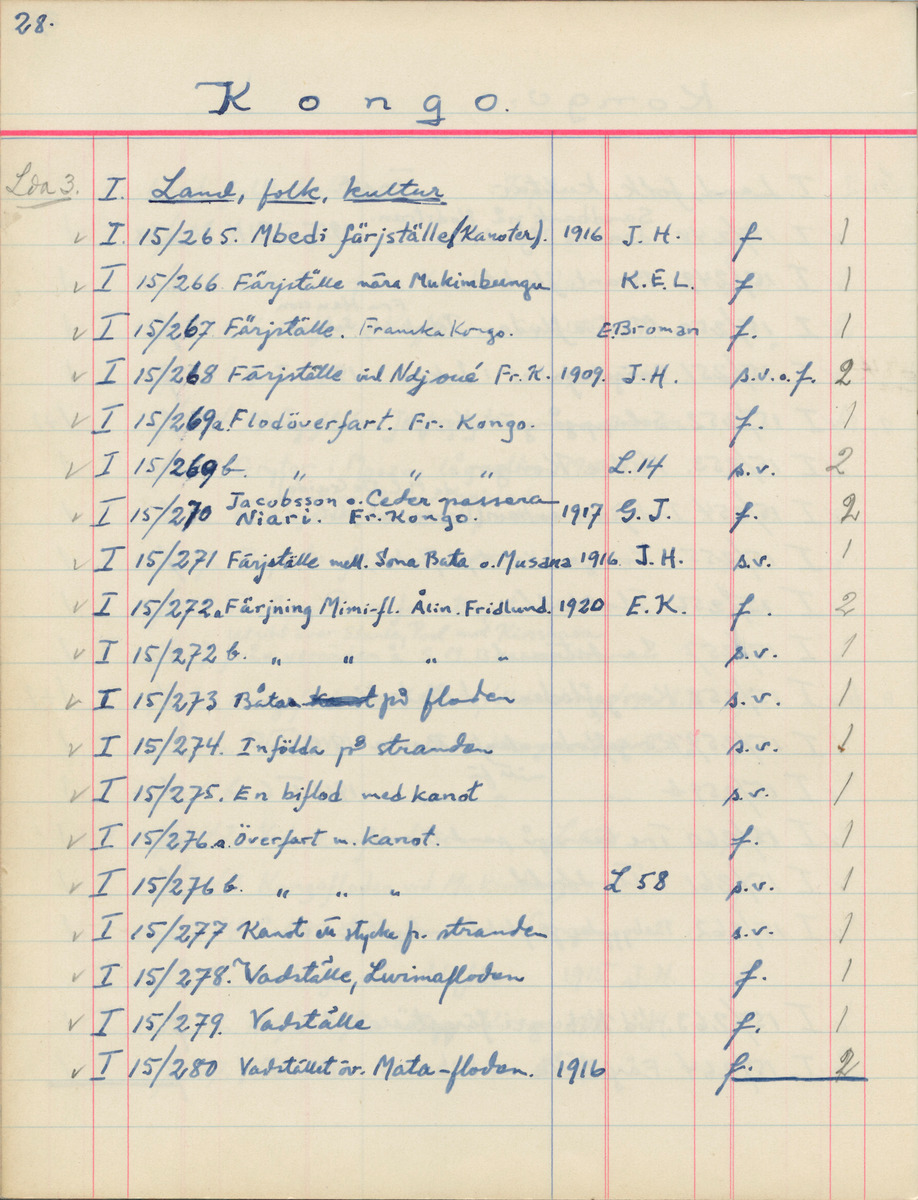 28.
Kongo.
Lda 3. I. Land, folk, kultur
✓ I. 15/265. Mbedi färjställe (Kanoter). 1916 J. H. f 1
✓ I 15/266 Färjställe nära Mukimbungu K. E. L. f 1
✓ I 15/267 Färjställe. Franska Kongo. E. Broman f. 1
✓ I 15/268 Färjställe vid Ndjoué Fr. K. 1909. J. H. s.v.o.f. 2
✓ I 15/269a. Flodöverfart. Fr. Kongo. f. 1
✓ I 15/269b. " " " L. 14 s.v. 2
Jacobsson o. Ceder passera
✓ I 15/270 Niari. Fr. Kongo. 1917 G. J. f. 2
✓ I 15/271 Färjställe mell. Sona Bata o. Musana 1916 J. H. s.v. 1
✓ I 15/272a Färjning Mimi-fl. Ålin. Fridlund. 1920 E. K. f. 2
✓ I 15/272b. " " " " s.v. 1
✓ I 15/273 Båtar på floden s.v. 1
✓ I 15/274. Infödda på stranden s.v. 1
✓ I 15/275. En biflod med kanot s.v. 1
✓ I 15/276a. Överfart m. kanot. f. 1
✓ I 15/276b. " " " L 58 s.v. 1
✓ I 15/277 Kanot ett stycke fr. stranden s.v. 1
✓ I 15/278. Vadställe, Lwimafloden f. 1
✓ I 15/279. Vadställe f. 1
✓ I 15/280 Vadstället öv. Mata-floden. 1916 f. 2